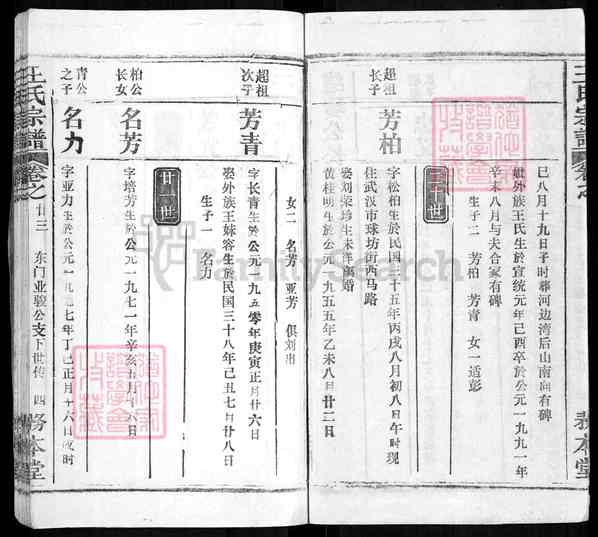 王氏宗譜
卷之
務本堂
巳八月十九日子时葬河边湾后山南向有碑
妣外族王氏生於宣统元年己酉卒於公元一九九一年
辛未八月与夫合冢有碑
生子二 芳柏 芳青 女一适彭
二十世
超祖长子
芳柏
字松柏生於民国三十五年丙戌八月初八日午时现
住武汉市球坊街西马路
娶刘荣珍生未详离婚
黄桂明生於公元一九五五年乙未八月廿二日
女二 名芳 亚芳 俱刘出
超祖次子
芳青
字长青生於公元一九五零年庚寅正月廿六日
娶外族王妹容生於民国三十八年己丑七月廿八日
生子一 名力
廿一世
柏公长女
名芳
字培芳生於公元一九七一年辛亥五月十六日
青公之子
名力
字亚力生於公元一九七七年丁巳正月十六日戌时
王氏宗譜
卷之廿三
东门业骏公支下世传
四
務本堂
FamilySearch